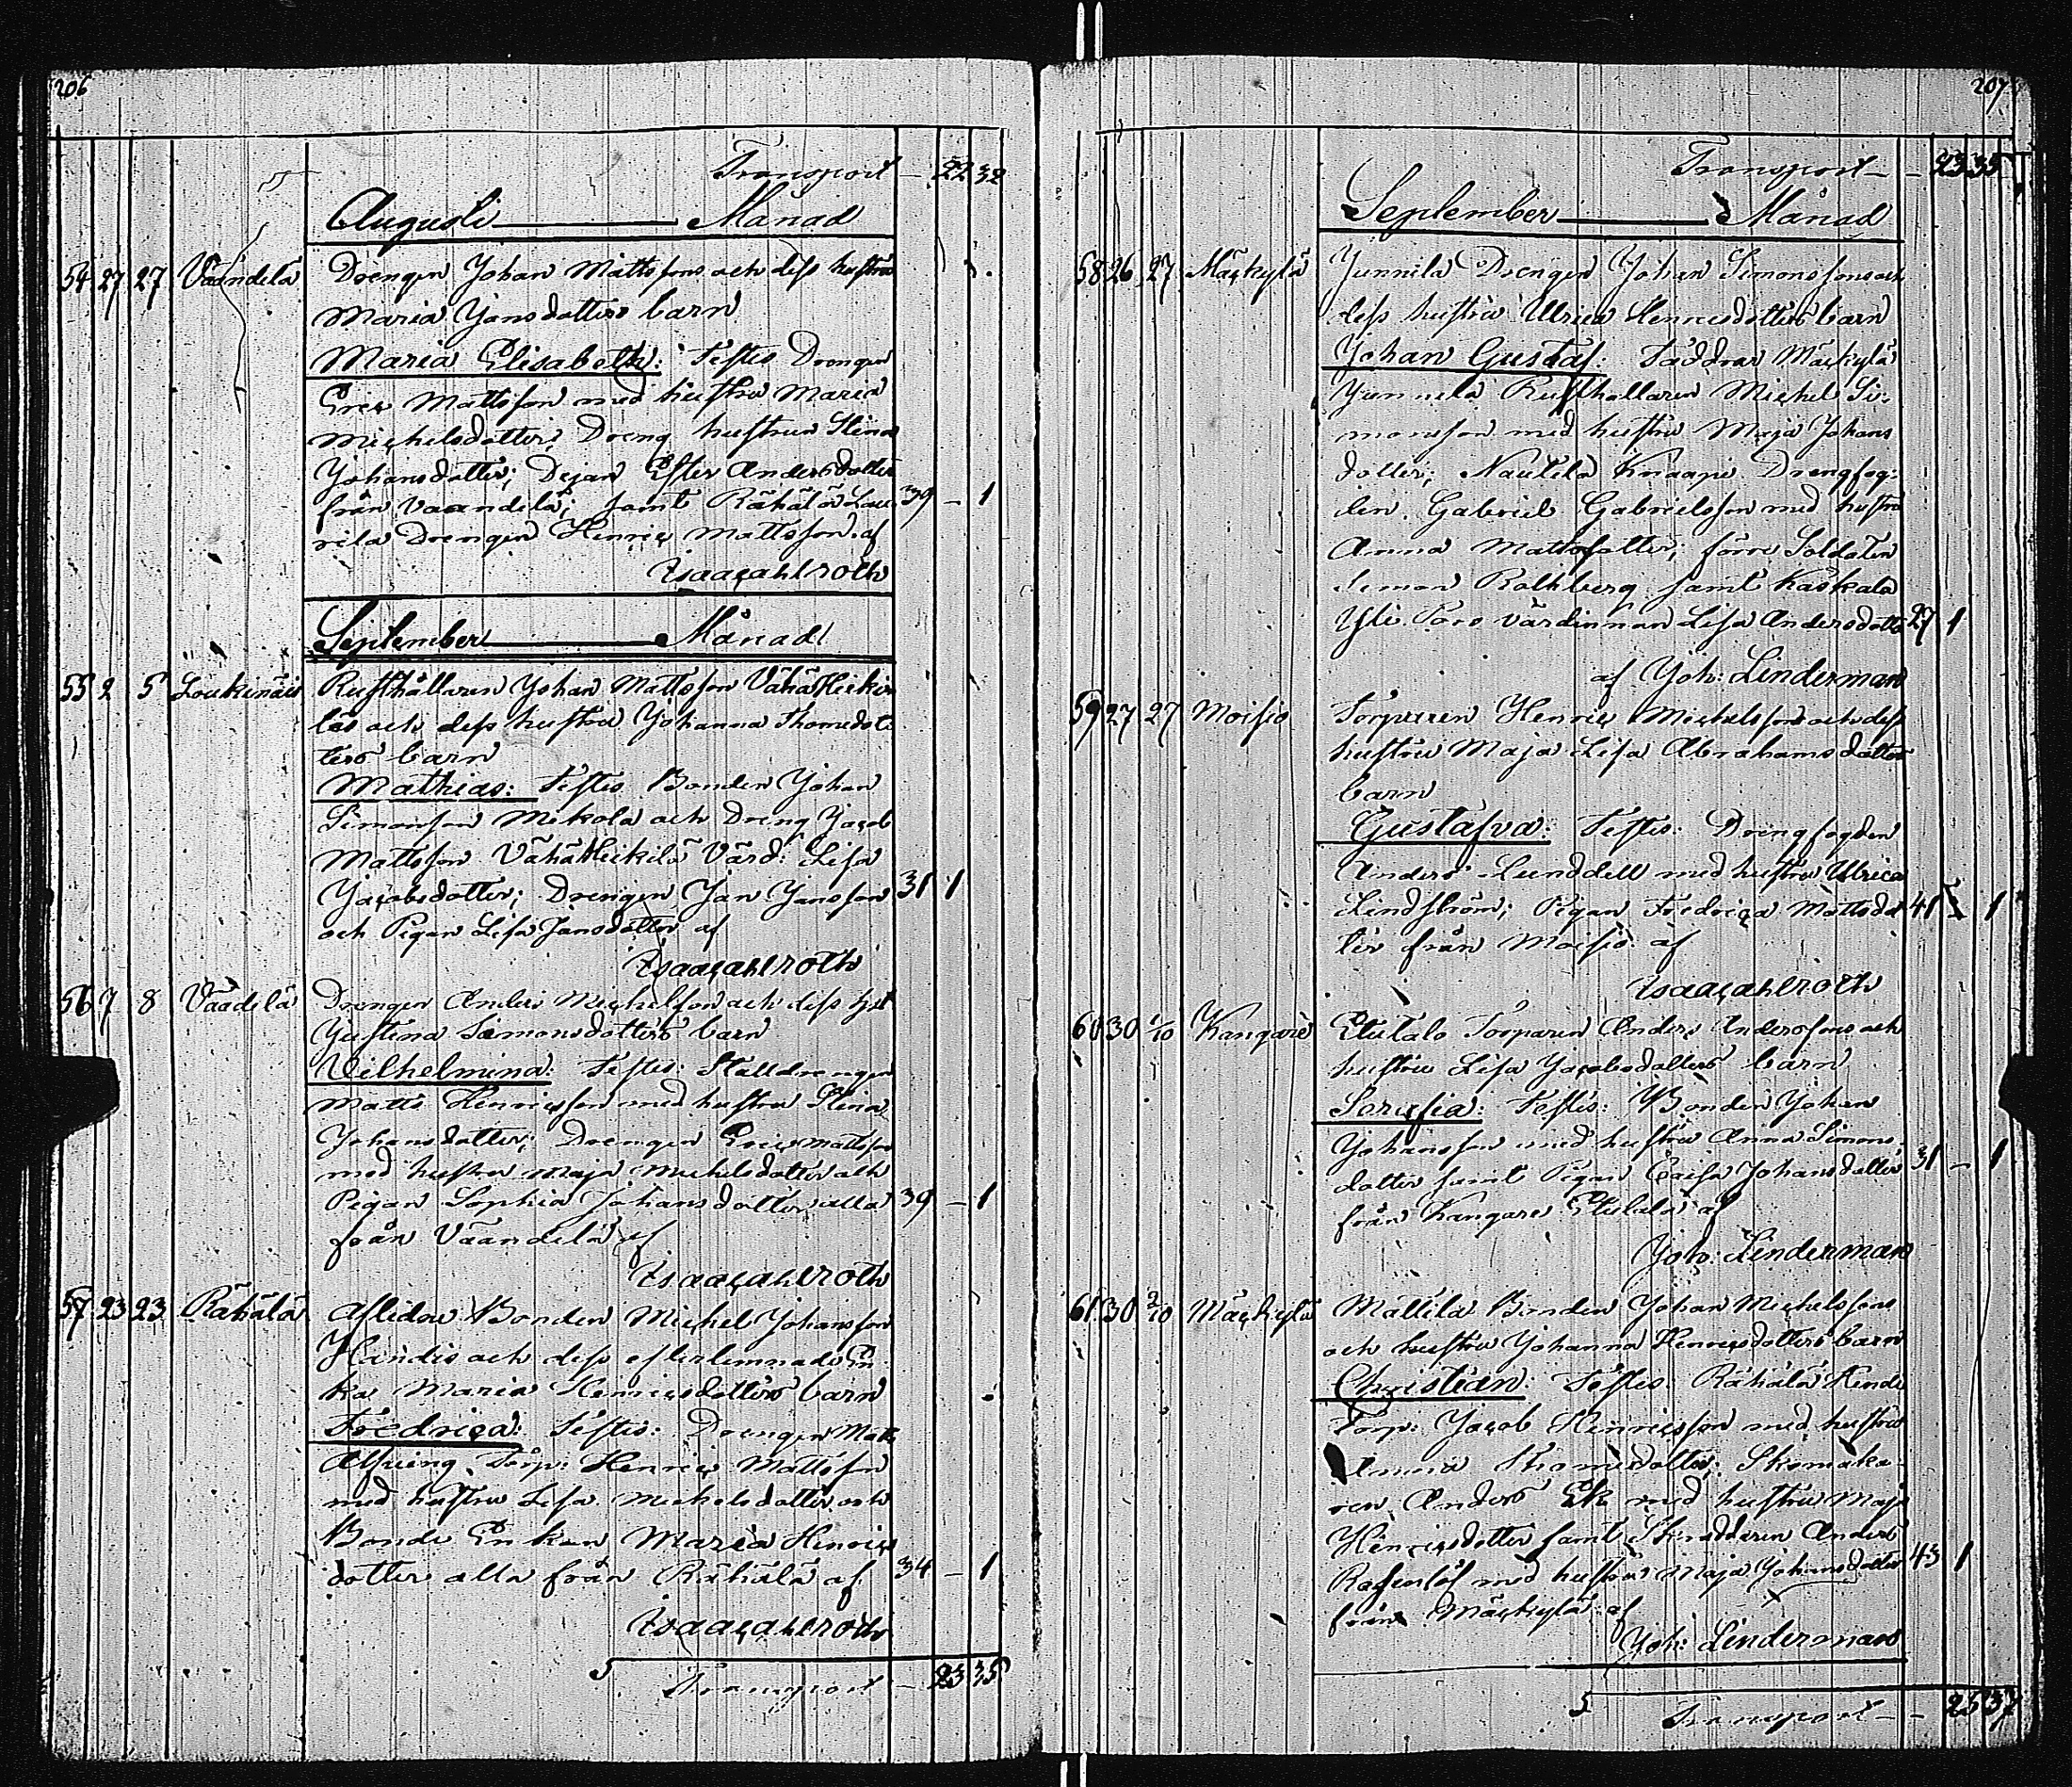 206
Transport — 22 32
Augusti Månad
54 27 27 Vaandela Drengen Johan Mattssons och dess hustru
Maria Jansdotters barn
Maria Elisabeth: Testes Drengen
Eric Mattsson med hustru Maria
Michelsdotter; Dreng hustrun Stina
Johansdotter; Pejan Ester Andersdotter
från Vaandela; samt Råhälä Lau- 39 — 1
rila Drengen Henric Mattsson. af
Isaac Ahlroth
September Månad
55 2 5 Loukinais Rusthållaren Johan Mattsson Vähä Heiki-
läs och dess hustru Johanna Thomedot-
ters barn
Mathias: Testes Bonden Johan
Simonsson Mikola och Dreng Jacob
Mattsson Vähä Heikilä Värd: Lisa
Jacobsdotter; Drengen Jan Jansson 31 1
och Pigan Lisa Jansdotter af
Isaac Ahlroth
56 7 8 Väädelä Drengen Anders Michelsson och dess hst
Justina Simonsdotters barn
Vilhelmina: Testes: Stalldrengen
Matts Henricsson med hustru Stina
Johansdotter; Drengen Eric Mattsson
med hustru Maja Michelsdotter och
Pigan Sophia Johansdotter alla 39 — 1
från Väändelä af
Isaac Ahlroth
57 23 23 Råhälä Aflidne Bonden Michel Johansson
Händis och dess efterlemnade En-
ka Maria Henricsdotters barn
Fredrica: Testes: Drengen Matts
Torp: Henric Mattsson
med hustru Lisa Michelsdotter och
Bonde Enkan Maria Henrics
dotter alla från Råhälä af 34 — 1
Isaac Ahlroth
5
Transport — 23 35
207
Transport — 23 35
September Månad
58 26 27 Mäckylä Junnila Drengen Johan Simonssons och
dess hustru Ulrica Henricsdotters barn
Johan Gustaf: Faddrar Mäckylä
Junnila Rusthållaren Michel Si-
monsson med hustru Maja Johans
dotter; Nautela Knaapi Drengfog-
den Gabriel Gabrielsson med hustru
Anna Mattsdotter; förre Soldaten
Simon Rothberg samt Kaskala
Yli Paro värdinnan Lisa Andersdotter 27 1
af Joh: Linderman
59 27 27 Moisio Torparen Henric Michelssons och dess
hustru Maja Lisa Abrahamsdotters
barn
Gustafva: Testes: Drengfogden
Anders Lunddell med hustru Ulrica
Lindström; Pigan Fredrica Mattsdot- 41 1
ter från Moisio af
Isaac Ahlroth
60 30 1/10 Kangare Etutalo Torparen Anders Anderssons och
hustru Lisa Jacobsdotters barn
Serafia: Testes: Bonden Johan
Johansson med hustru Anna Simons-
dotter samt Pigan Caisa Johansdotter 31 — 1
från Kangare Etutalo af
Joh: Linderman
61 30 2/10 Mäckylä Mattila Bonden Johan Michelssons
och hustru Johanna Henricsdotters barn
Christian: Testes: Råhälä Hendi
Torp: Jacob Henricsson med hustru
Anna Thomasdotter; Skomaka-
ren Anders Ek med hustru Maja
Henricsdotter samt Skräddaren Anders
med hustru Maja Johansdotter 43 1
från Mäckylä af
Joh: Linderman
5
Transport — 25 37